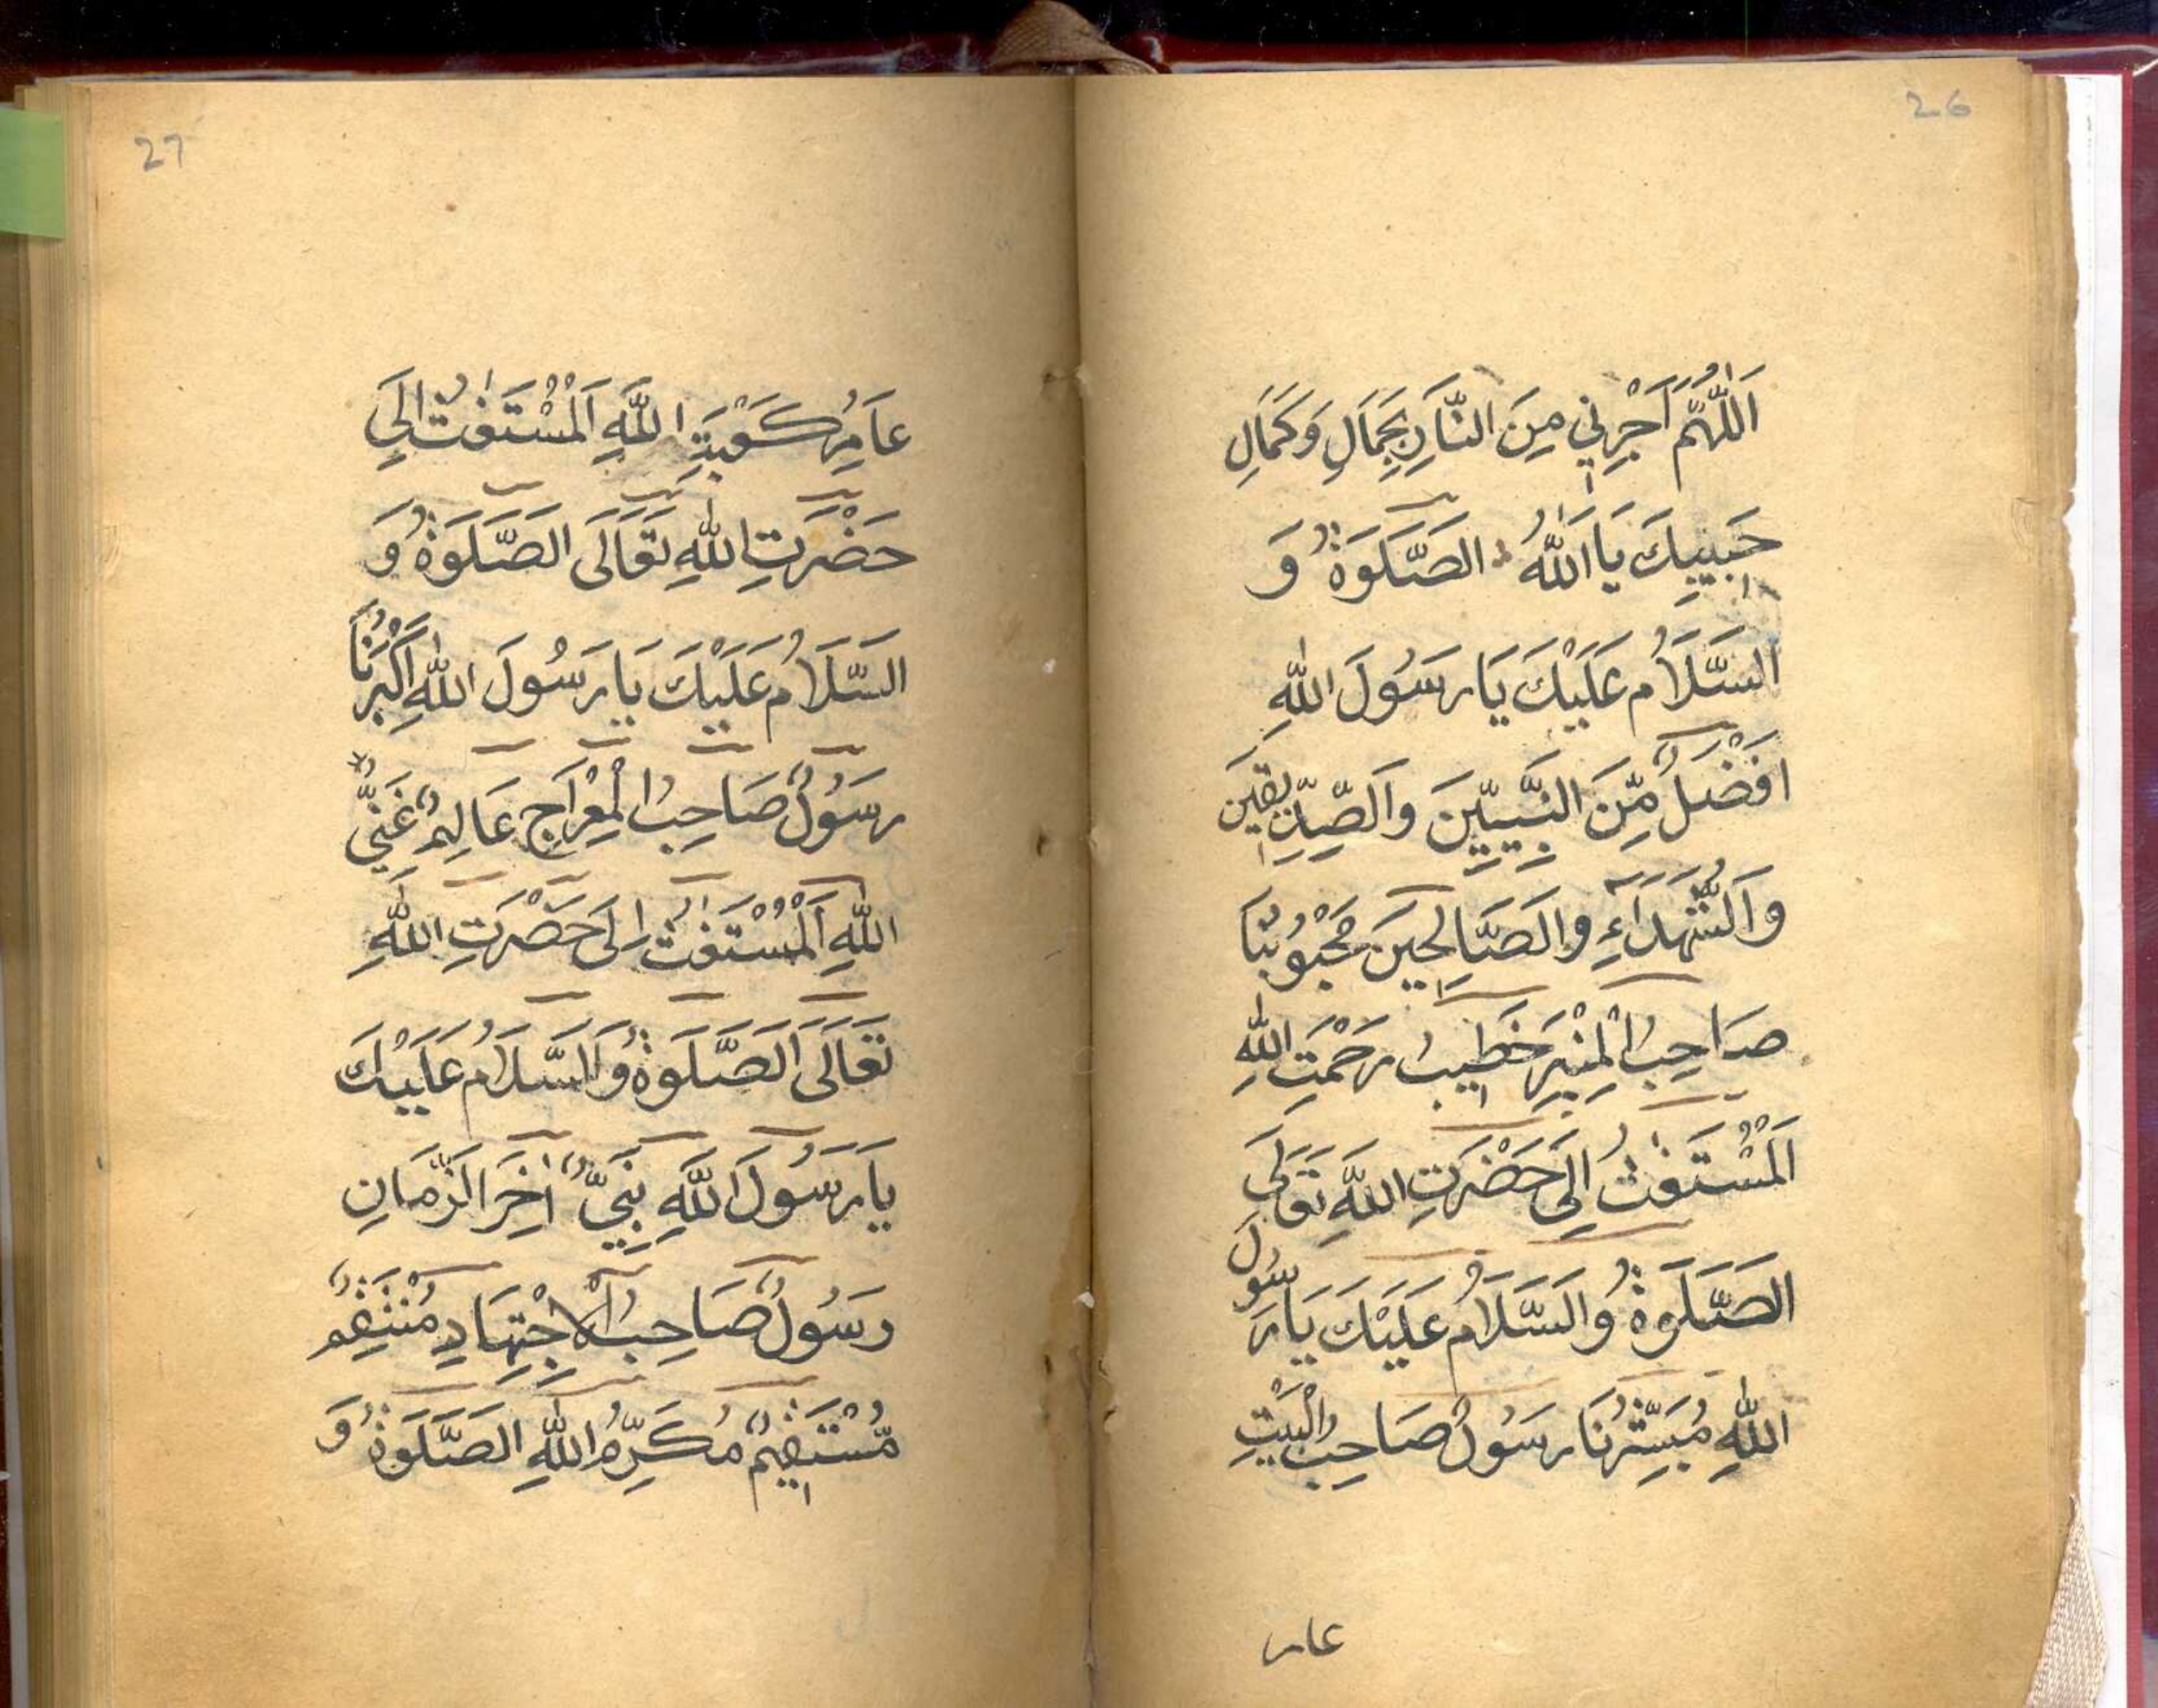 26
اَللّٰهُمَّ اَجْرِنِي مِنَ النَّارِ بِجَمَالِ وَكَمَالِ
حَبِيبِكَ يَا اَللّٰهُ الصَّلَوةُ وَ
السَّلَامُ عَلَيْكَ يَا رَسُولَ اللّٰهِ
اَفْضَلٌ مِّنَ النَّبِيِّينَ وَالصِّدِّيقِينَ
وَالشُّهَدَآءِ وَالصَّالِحِينَ مَحْبُوبُنَا
صَاحِبُ الْمِنْبَرِ خَطِيبُ رَحْمَتِ اللّٰهِ
اَلْمُسْتَغٰثُ اِلَى حَضْرَتِ اللّٰهِ تَعَالَى
الصَّلَوةُ وَالسَّلَامُ عَلَيْكَ يَا رَسُولَ
اللّٰهِ مُبَشِّرُنَا رَسُولٌ صَاحِبُ الْبَيْتِ
عامر
27
عَامِرُ كَعْبَةِ اللّٰهِ اَلْمُسْتَغٰثُ اِلَى
حَضْرَتِ اللّٰهِ تَعَالَى الصَّلَوةُ وَ
السَّلَامُ عَلَيْكَ يَا رَسُولَ اللّٰهِ اَكْبَرُنَا
رَسُولٌ صَاحِبُ الْمِعْرَاجِ عَالِمٌ غَنِيُّ
اللّٰهِ اَلْمُسْتَغٰثُ اِلَى حَضْرَتِ اللّٰهِ
تَعَالَى اَلصَّلَوةُ وَالسَّلَامُ عَلَيْكَ
يَا رَسُولَ اللّٰهِ نَبِيٌّ اٰخِرَ الزَّمَانِ
رَسُولٌ صَاحِبُ الْاِجْتِهَادِ مُنْتَقِمٌ
مُّسْتَقِيمٌ مُكَرِّمُ اللّٰهِ الصَّلَوةُ وَ